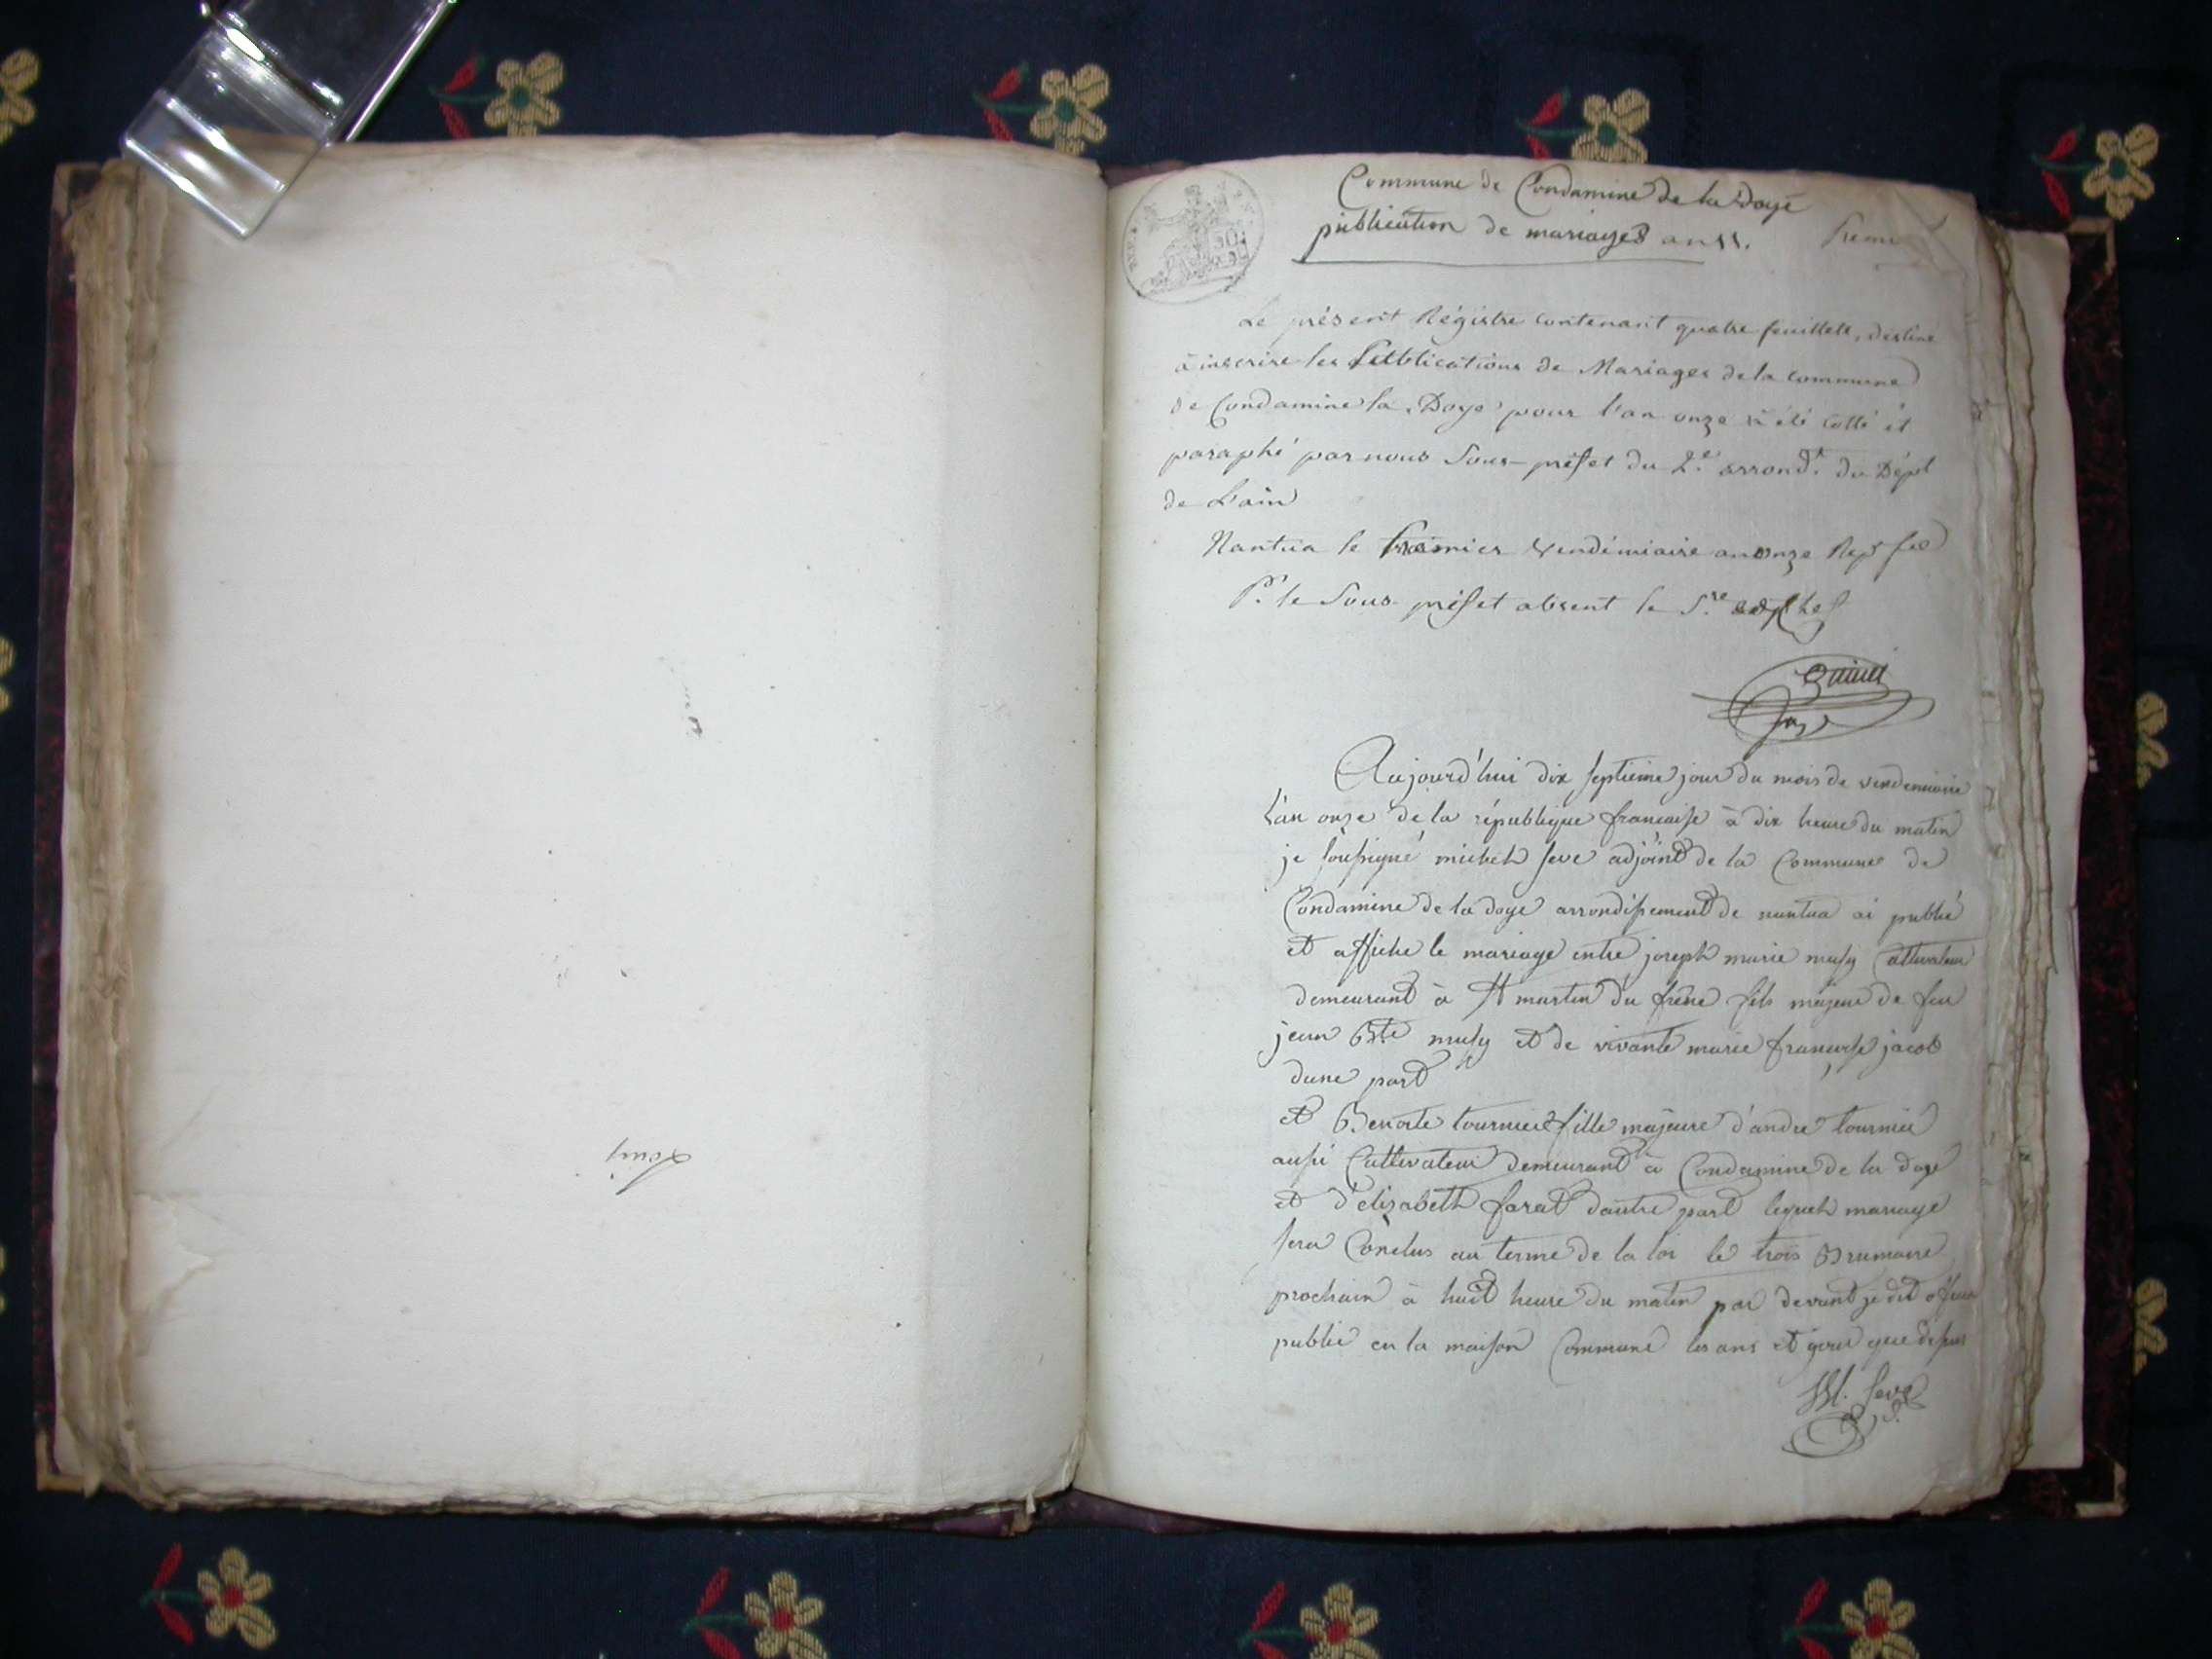 Commune de Condamine de la Doye
publication de mariages an 11.
Le présent Régistre contenant quatre feuillets, destiné
à inscrire les Publications de Mariages de la commune
de Condamine la Doye pour l'an onze a été cotté et
paraphé par nous Sous-préfet du 2.e arrond.t du Dépt
de L'ain
Nantua le Premier Vendémiaire an onze Rep. fse
Pr. le Sous-préfet absent le S.re en chef
Aujourd'hui dix septieme jour du mois de vendemiaire
L'an onze de la république francaise à dix heure du matin
je sousigné michel seve adjoint de la Commune de
Condamine de la doye arrondisement de nantua ai publié
et affiche le mariage entre joseph marie musy Cultivateur
demeurant à St martin du frêne fils majeur de feu
jean Bte musy et de vivante marie francoise jacob
dune part
et Benoite tournier fille majeure d'andre tournier
ausi Cultivateur demeurant à Condamine de la doye
et d'elizabeth farat dautre part lequel mariage
sera Conclus au terme de la loi le trois Brumaire
prochain à huit heure du matin par devant je dit officier
public en la maison Commune les ans et jour que desus
M. Seve